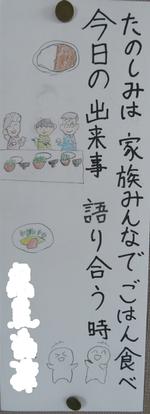 たのしみは 家族みんなで ごはん食べ
今日の出来事 語り合う時